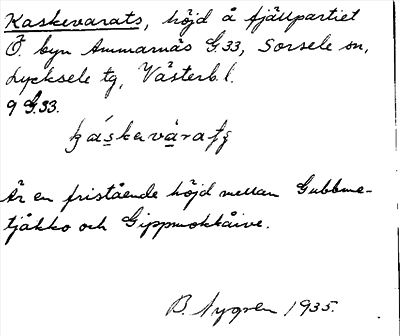 Kaskevarats, höjd å fjällpartiet
Ö. byn Ammarnäs G.33, Sorsele sn,
Lycksele tg, Västerb.l.
9 G.33.
káskevàratʒ
Är en fristående höjd mellan Gubbme-
tjåkko och Gippmokkåive.
B. Nygren 1935.